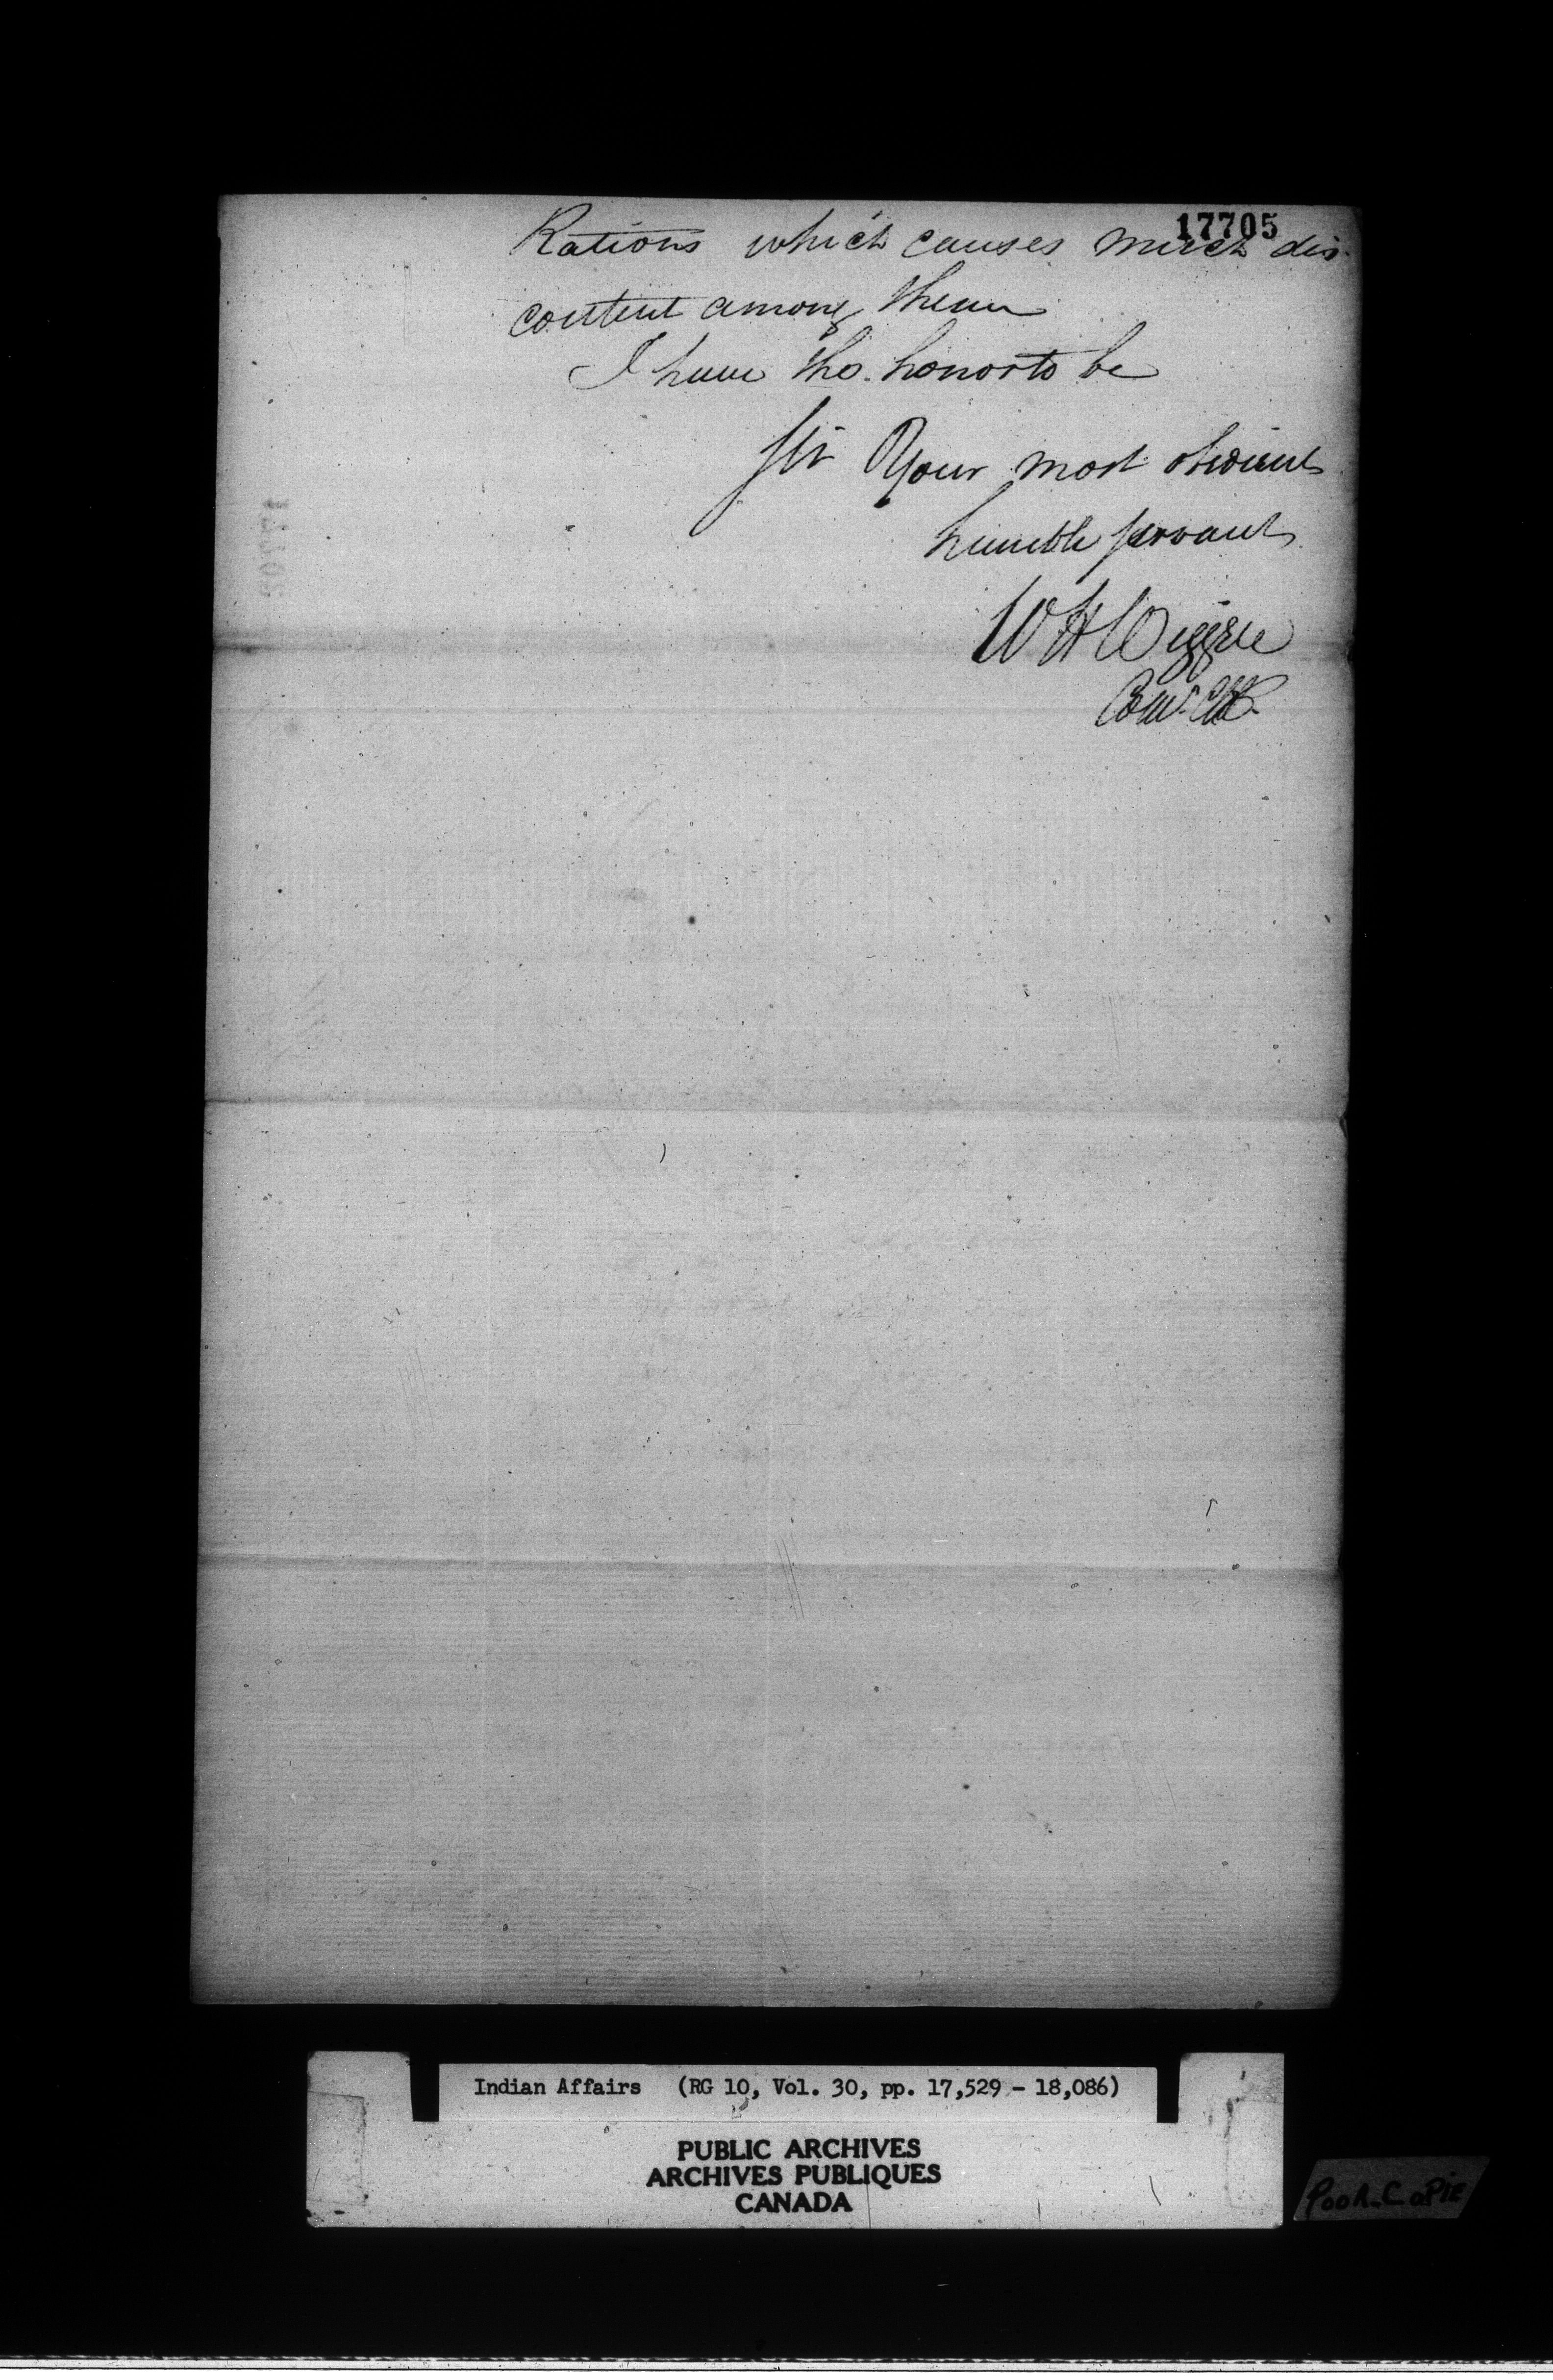 17705
Rations which causes much dis-
content among them
I have the honor to be
Sir Your most obedient
humble servant
W H Wiggle
Indian Affairs (RG 10, Vol. 30, pp. 17,529 - 18,086)
PUBLIC ARCHIVES
ARCHIVES PUBLIQUES
CANADA
POOR_COPIE